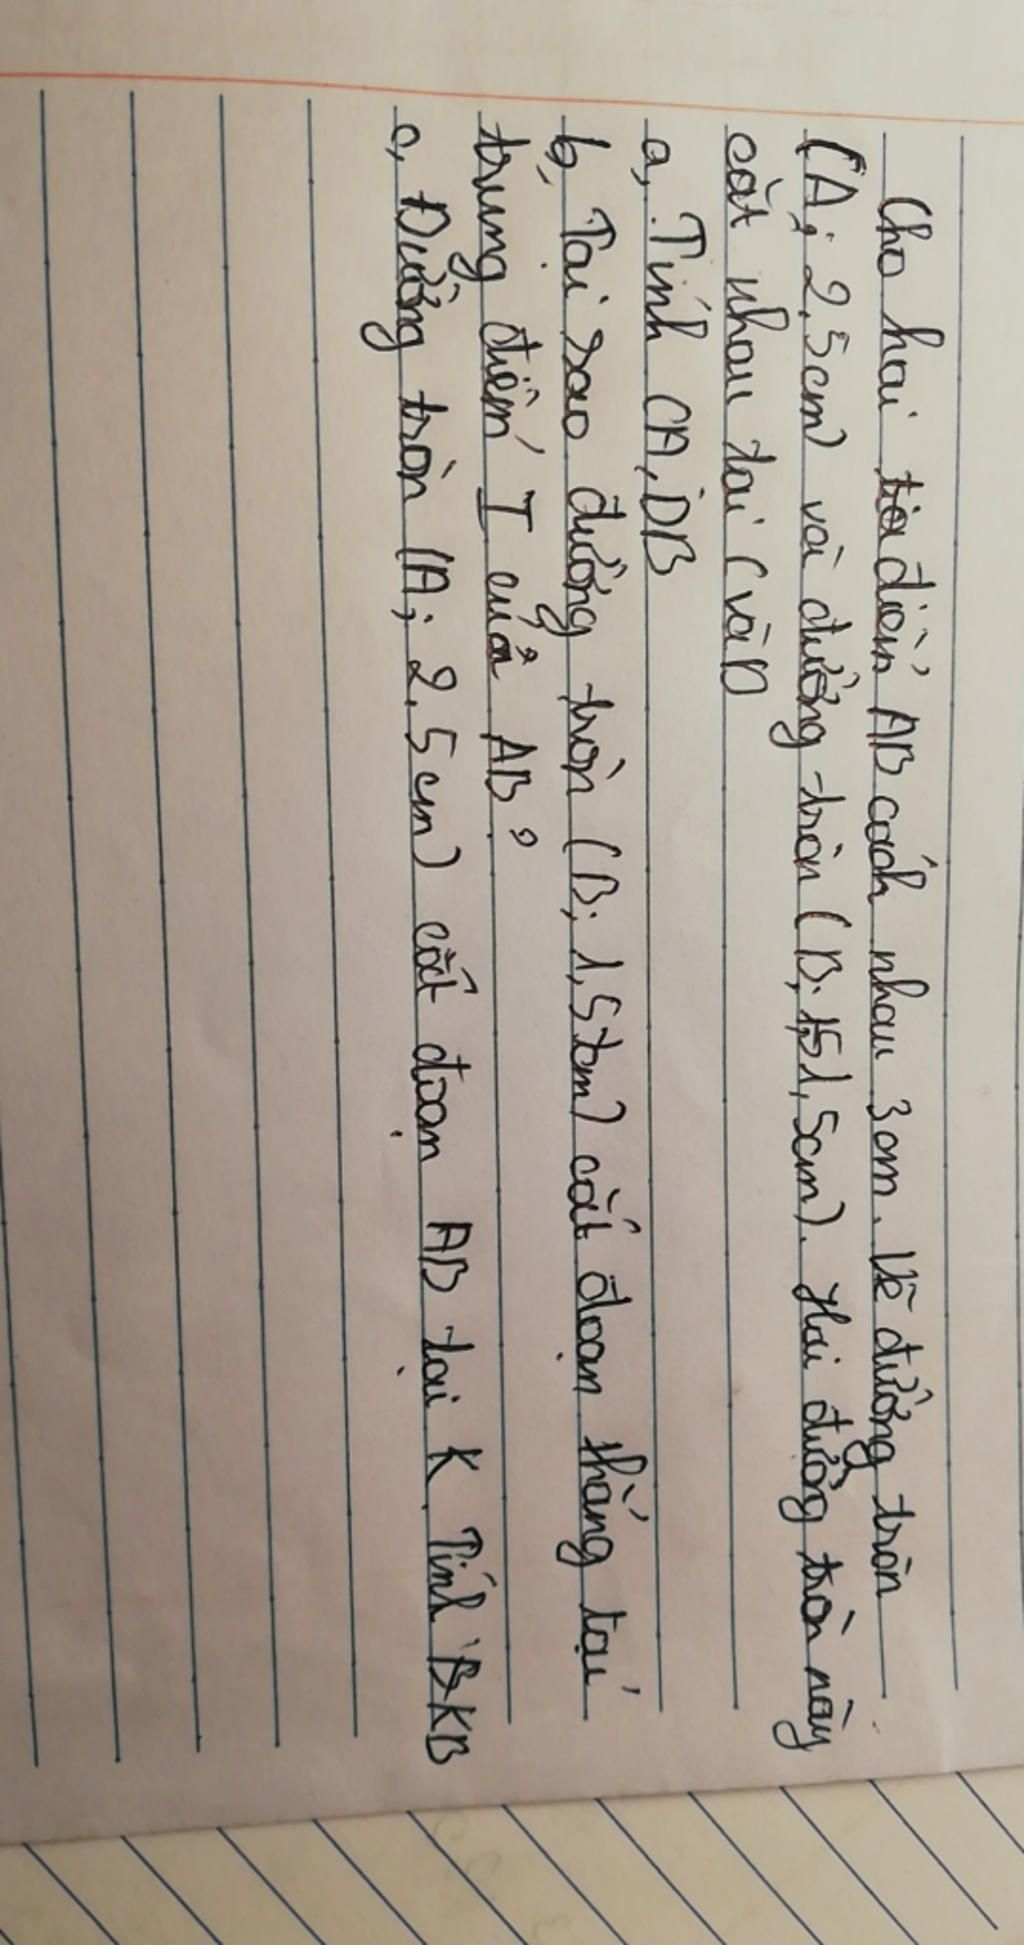 Cho hai điểm AB cách nhau 3cm. Vẽ đường tròn
(A; 2,5cm) và đường tròn (B; 1,5cm). Hai đường tròn này
cắt nhau tại C và D
a, Tính CA, DB
b, Tại sao đường tròn (B; 1,5cm) cắt đoạn thẳng tại
trung điểm I của AB?
c, Đường tròn (A; 2,5cm) cắt đoạn AB tại K. Tính KB